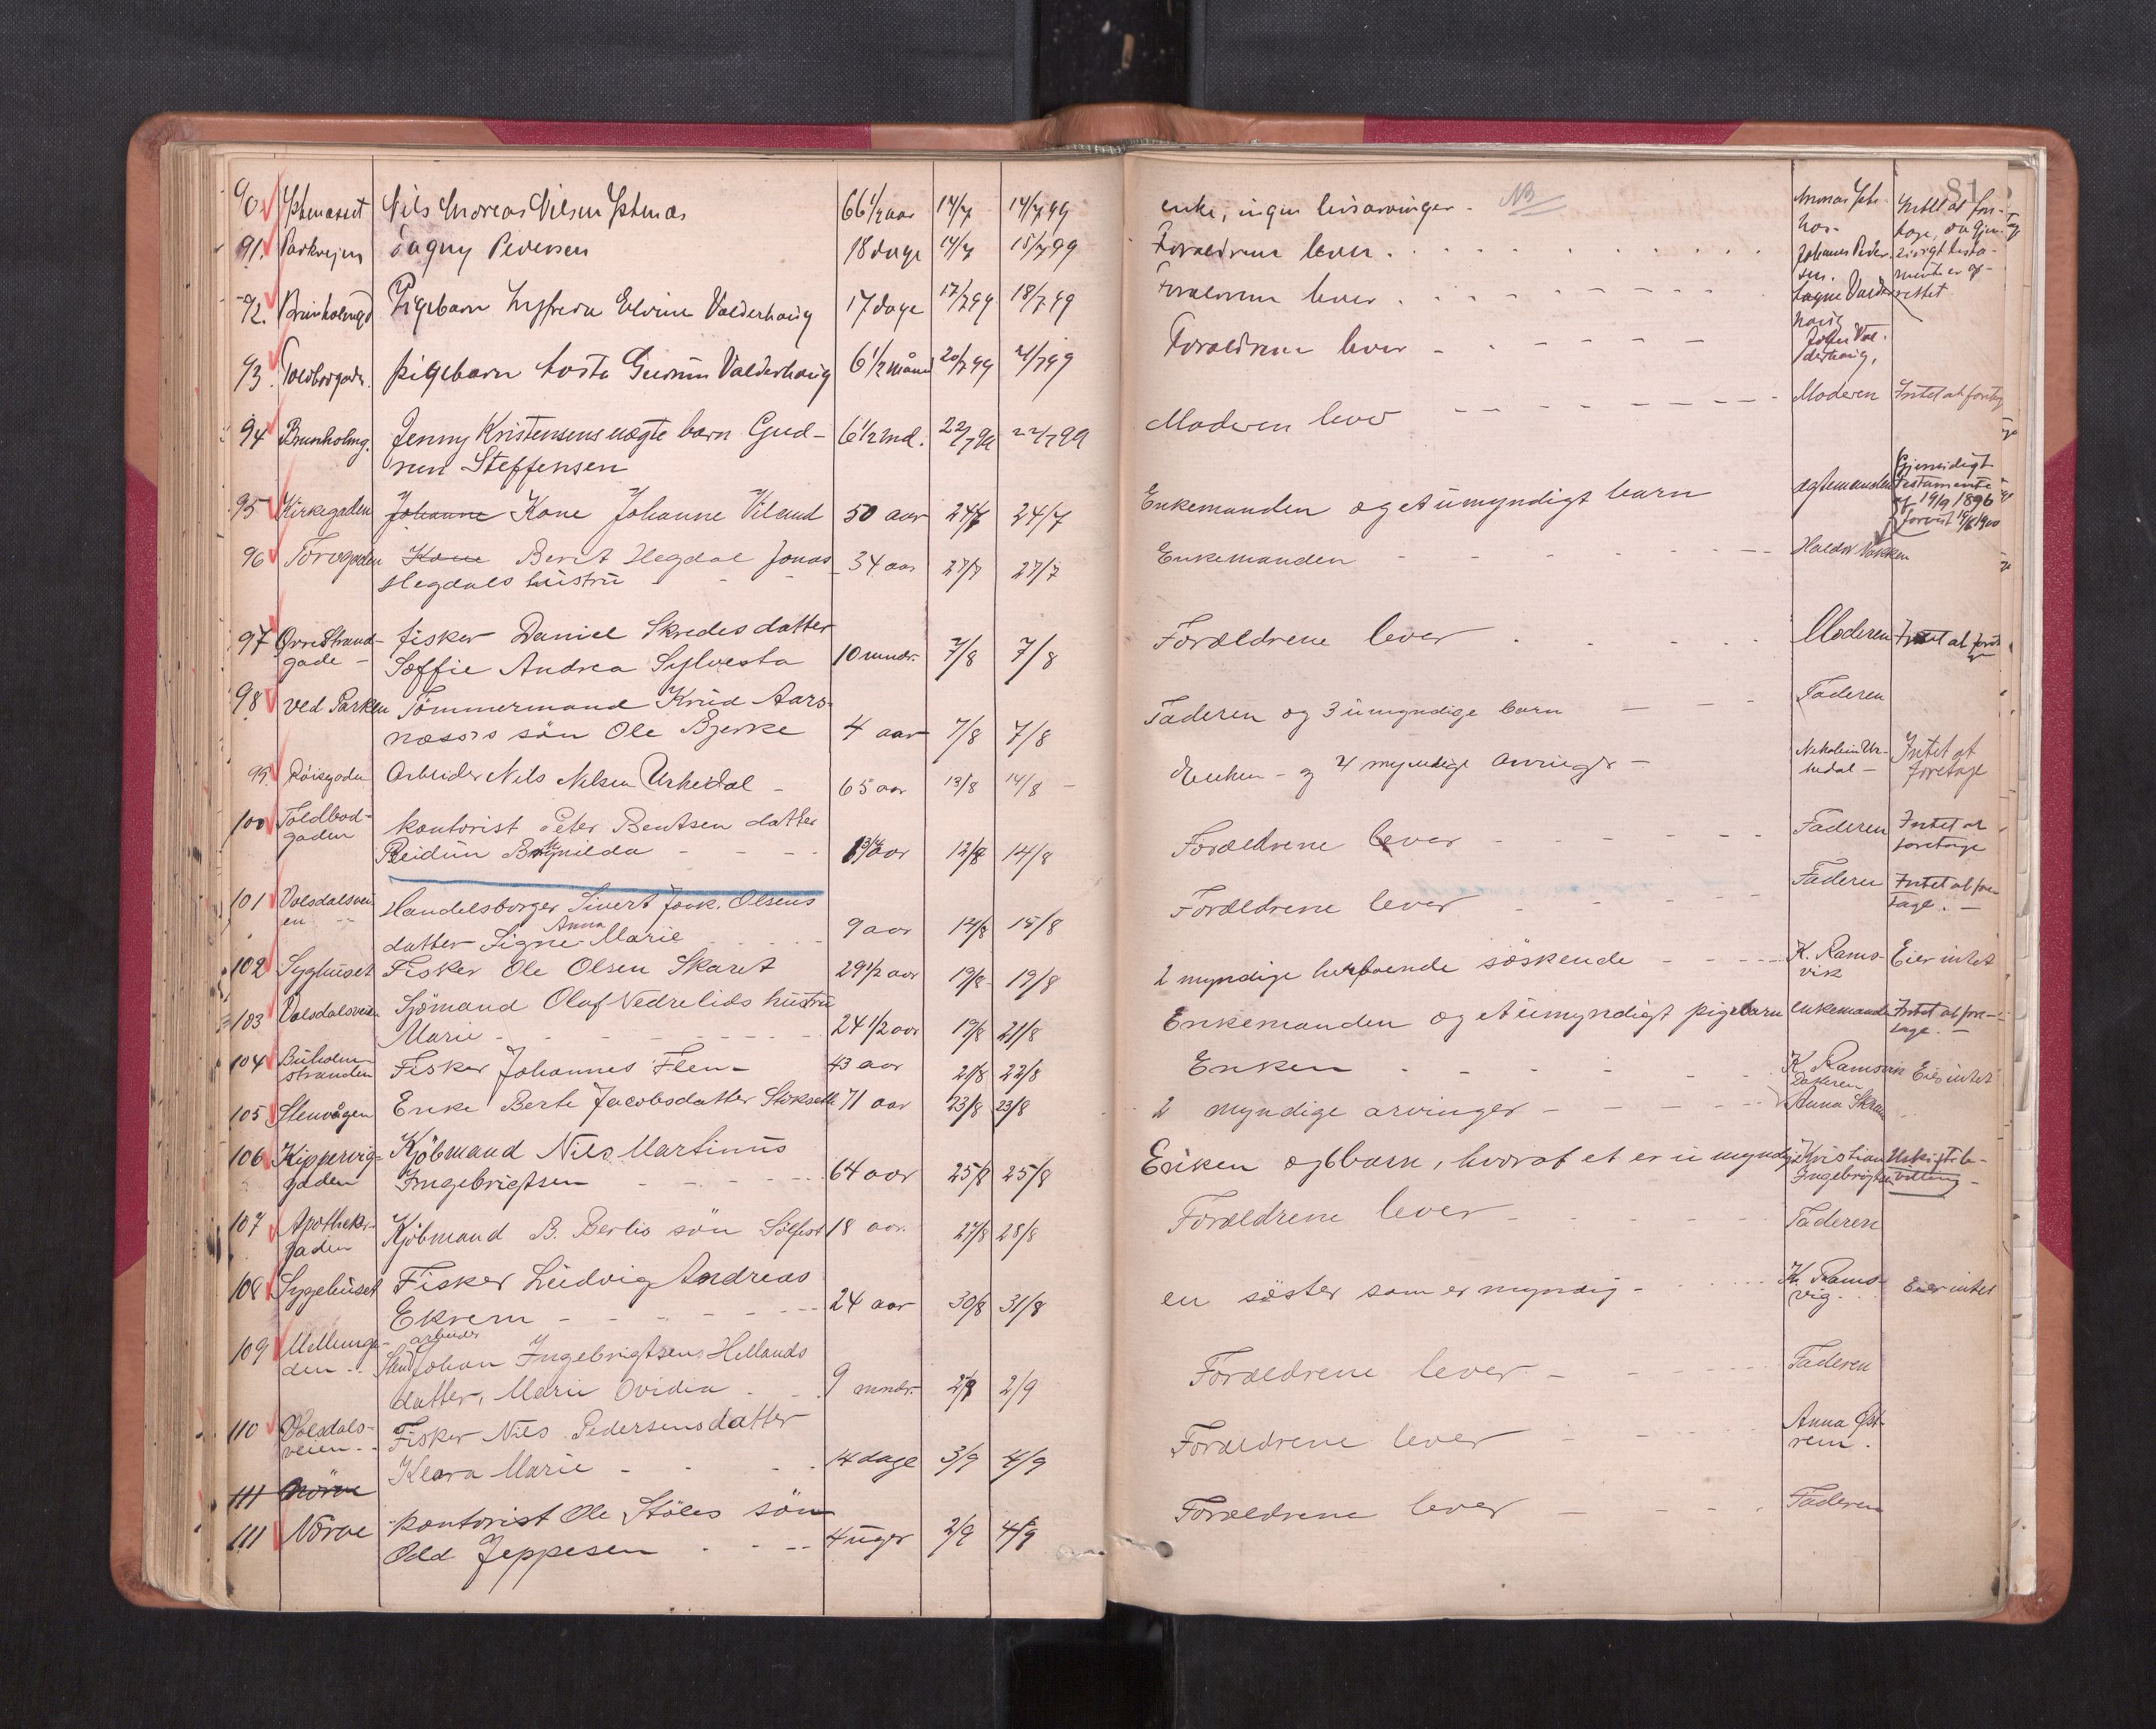 81
90 Nils Andreas Nilsen Ystenæs 66 1/2 aar 14/7 14/7 99 enke, ingen livsarvinger. NB Intet at fore-
tage, da gjen-
sidigt testa-
mente er op-
rettet
91. Parkveien Dagny Pedersen 18 dage 14/7 15/7 99 Forældrene lever Johannes Peder-
sen.
92. Brunholmgd Pigebarn Elvine Valderhaug 17 dage 17/7 99 18/7 99 Forældrene lever Valder-
haug
93. Toldbodgaden. pigebarn Gudrun Valderhaug 6 1/2 måned 20/7 99 21/7 99 Forældrene lever Val-
derhaug.
94 Brunholmg. Jenny Kristensens uægte barn Gud-
run Steffensen 6 1/2 md. 22/7 99 22/7 99 Moderen lever Moderen Intet at foretage
95 Kirkegaden Johanne Kone Johanne Viland 50 aar 24/7 24/7 Enkemanden og et umyndigt barn ægtemanden Gjensidigt
testamente
af 19/9 1896
96 Torvgaden Kone Berit Hegdal Jonas
Hegdals hustru 34 aar 27/7 27/7 Enkemanden Haldor Nakken
97 Øvre Strand-
gade - fisker Daniel Skredes datter
Soffie Andrea Sylvesta 10 mndr. 7/8 7/8 Forældrene lever Moderen Intet at foretage
98 ved Parken Tømmermand Knud Aars-
næss's søn Ole Bjerke 4 aar 7/8 7/8 Faderen og 3 umyndige barn Faderen
99. Røisgaden Arbeider Nils Nilsen Urkedal - 65 aar 13/8 14/8 Enken - og 4 myndige arvinger - Intet at
foretage
100 Toldbod-
gaden kontorist Peter Bentsen datter
Reidun Brynilda 12/8 14/8 Forældrene lever Faderen Intet at
foretage
101 Volsdalsvei-
en Handelsborger Sivert Olsens
datter Signe Anna Marie 9 aar 14/8 15/8 Forældrene lever Faderen Intet at fore-
tage. -
102 Syghuset Fisker Ole Olsen Skaret 29 1/2 aar 19/8 19/8 2 myndige herboende søskende K. Rams-
vik Eier intet
103 Volsdalsveien Sjømand Olaf Nedrelids hustru
Marie 24 1/2 aar 19/8 21/8 Enkemanden og et umyndigt pigebarn enkemanden Intet at fore-
tage. -
104 Buholm-
stranden Fisker Johannes Flem 43 aar 21/8 22/8 Enken K. Ramsvik Eier intet
105 Stenvågen Enke Berte Jacobsdatter Stokseth 71 aar 23/8 23/8 2 myndige arvinger Datteren
Anna
106 Kippervig-
gaden Kjøbmand Nils Martinus
Ingebrigtsen 64 aar 25/8 25/8 Enken og 6 barn, hvoraf et er umyndig Kristian
Ingebrigtsen Uskiftebe-
villing -
107 Apotheker-
gaden Kjøbmand B. Berlis søn Sølfest 18 aar. 27/8 28/8 Forældrene lever Faderen
108 Sygehuset Fisker Ludvig Andreas
Ekrem 24 aar 30/8 31/8 en søster som er myndig - K. Rams-
vig. Eier intet
109 Mellemga-
den Sten arbeider Johan Ingebrigtsens Hellands
datter, Marie Ovidia 9 mndr. 2/9 2/9 Forældrene lever Faderen
110 Volsdals-
veien Fisker Nils Pedersens datter
Klara Marie 14 dage 3/9 4/9 Forældrene lever Anna Øst-
rem.
111 Nørve
111 Nørve kontorist Ole Støles søn
Odd Jeppesen 4 uger 2/9 4/9 Forældrene lever Faderen